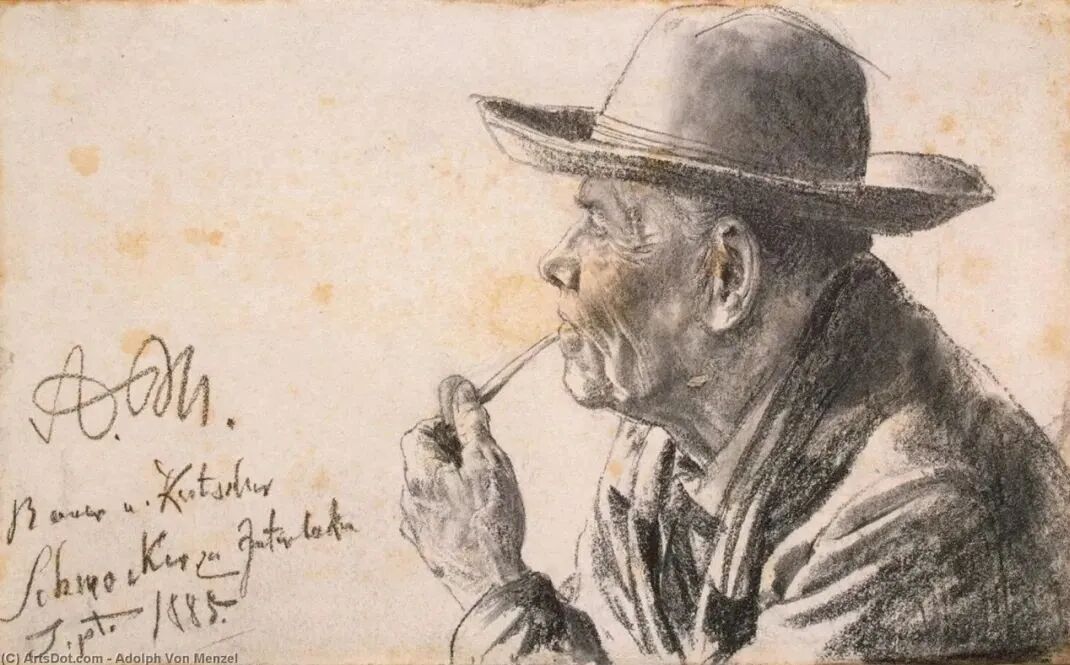 A. M.
Bauer u. Kutscher
Schmocker zu Interlaken
Sept. 1885.
(C) ArtsDot.com - Adolph Von Menzel